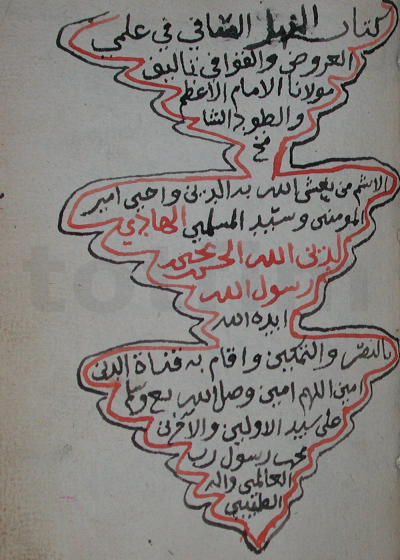 كتاب النهل الصافي في علمي
العروض والقوافي تاليف
مولانا الامام الاعظم
والطود الشا
مخ
الاشم من يعش الله به الدين واحيى امير
المومنين وسيد المسلمين الهادي
لدين الله الحسن بن يحيى
رسول الله
ايده الله
بالنصر والتمكين واقام به قناة الدين
امين اللهم امين وصل الله مع وسلم
على سيد الاولين والاخرين
محمد رسول رب
العالمين واله
الطيبين